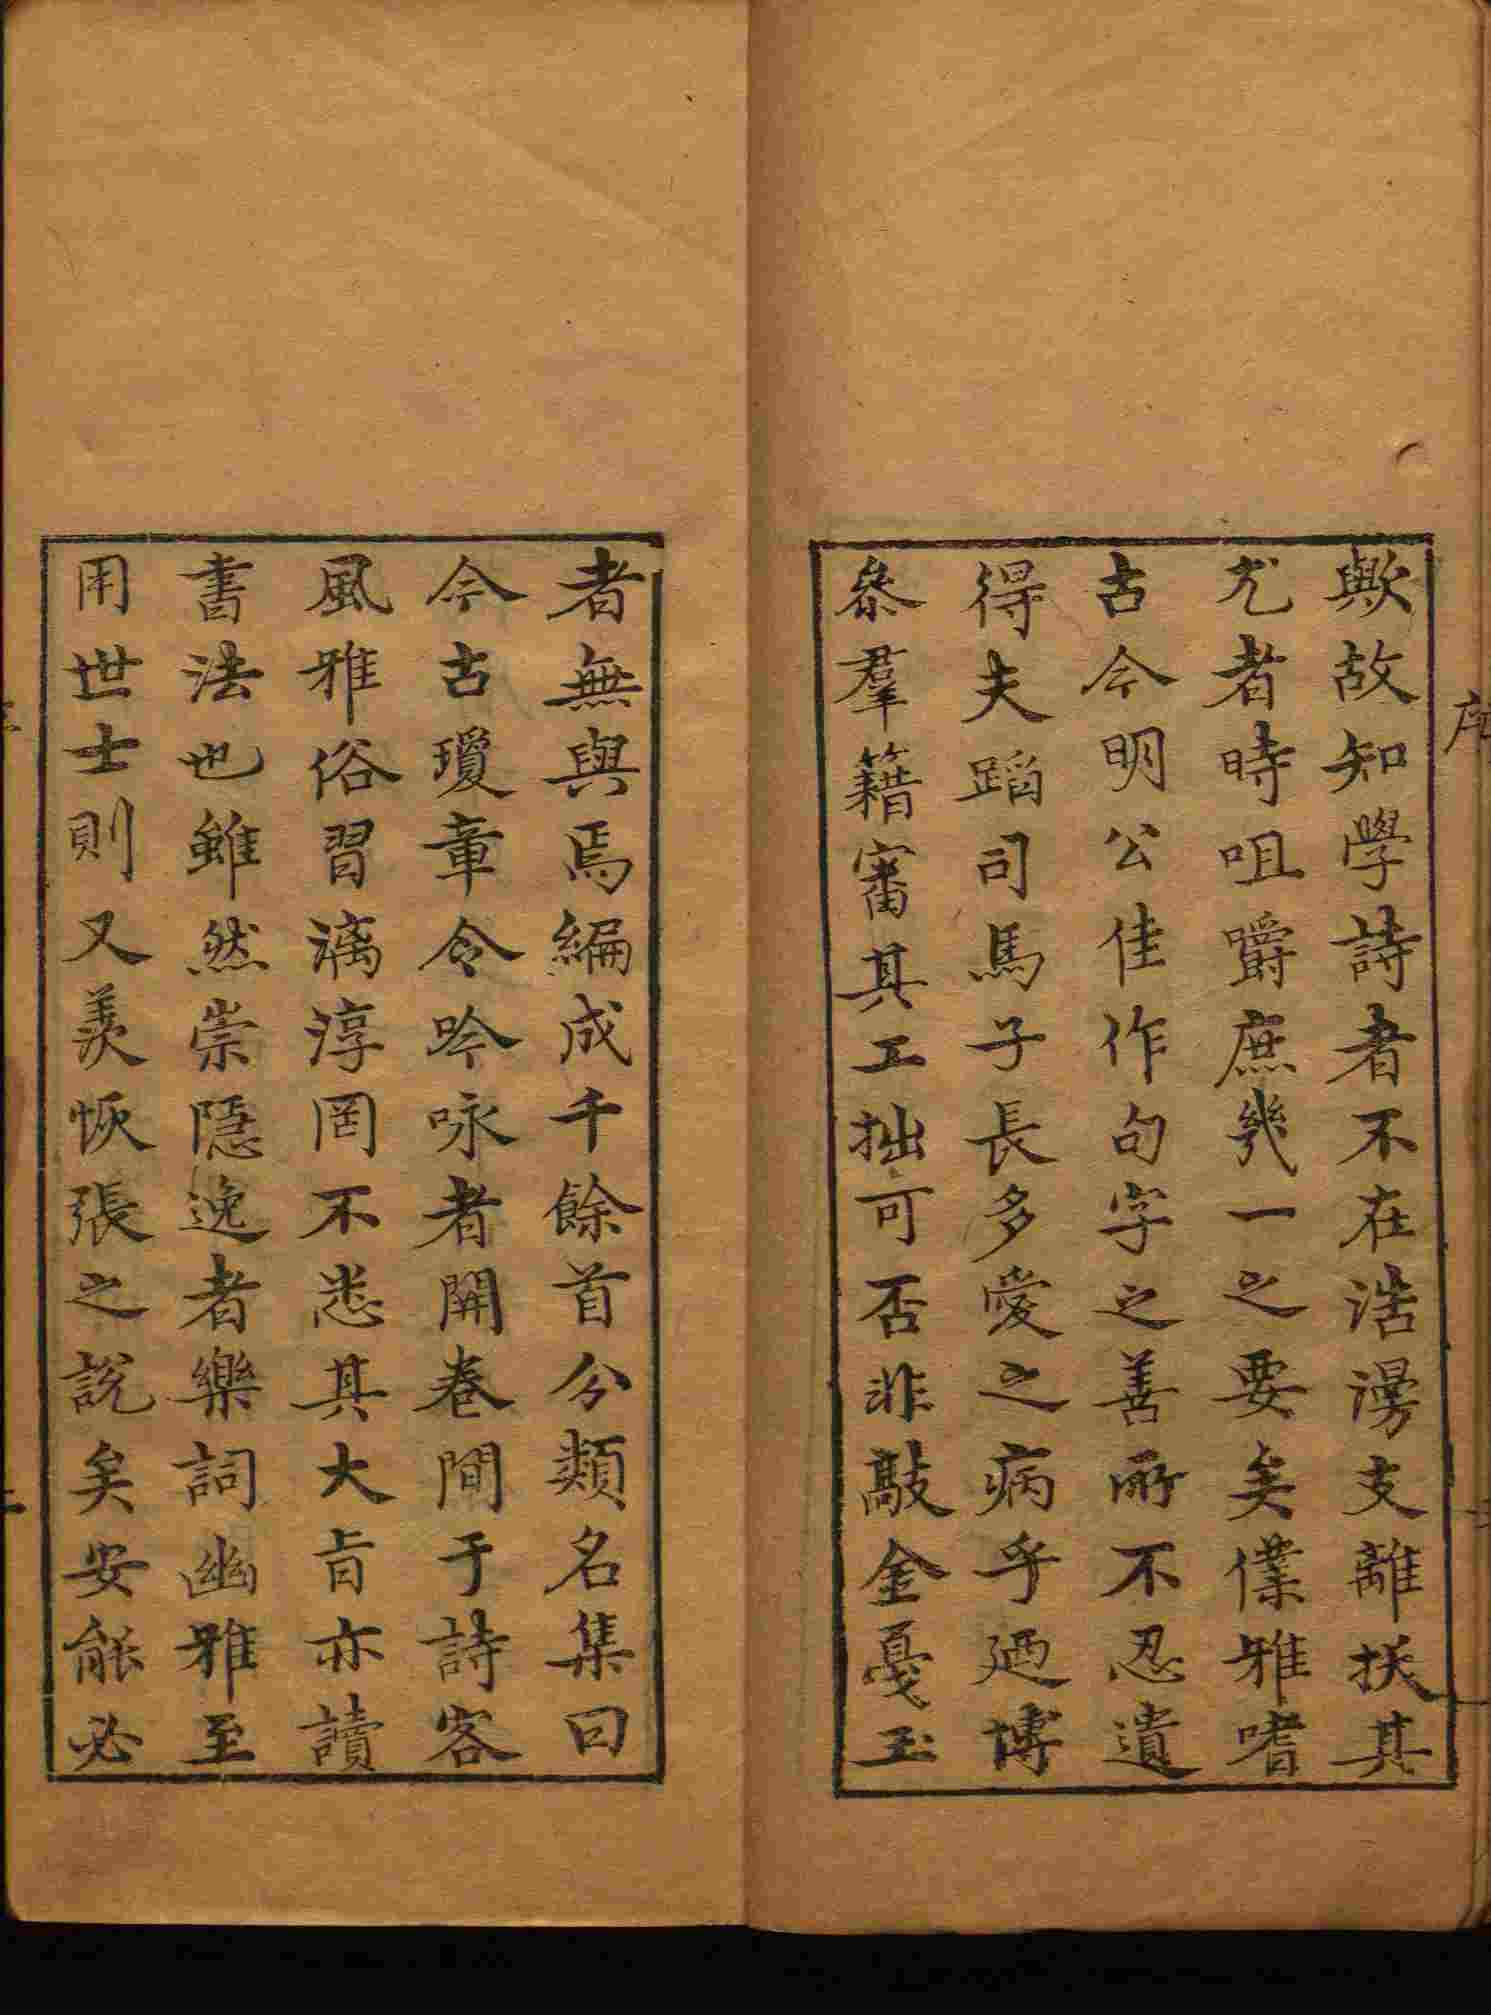 歟故知學詩者不在浩漫支離挨其
尤者時咀嚼庶幾一之要矣僕雅嗜
古今明公佳作句字之善所不忍遺
得夫蹈司馬子長多愛之病乎廼博
叅羣籍審其工拙可否非敲金戞玉
者無與焉編成千餘首分類名集曰
今古瓊章令吟咏者開卷間于詩客
風雅俗習漓淳罔不悉其大旨亦讀
書法也雖然崇隱逸者樂詞幽雅至
用世士則又羨恢張之說矣安能必
序